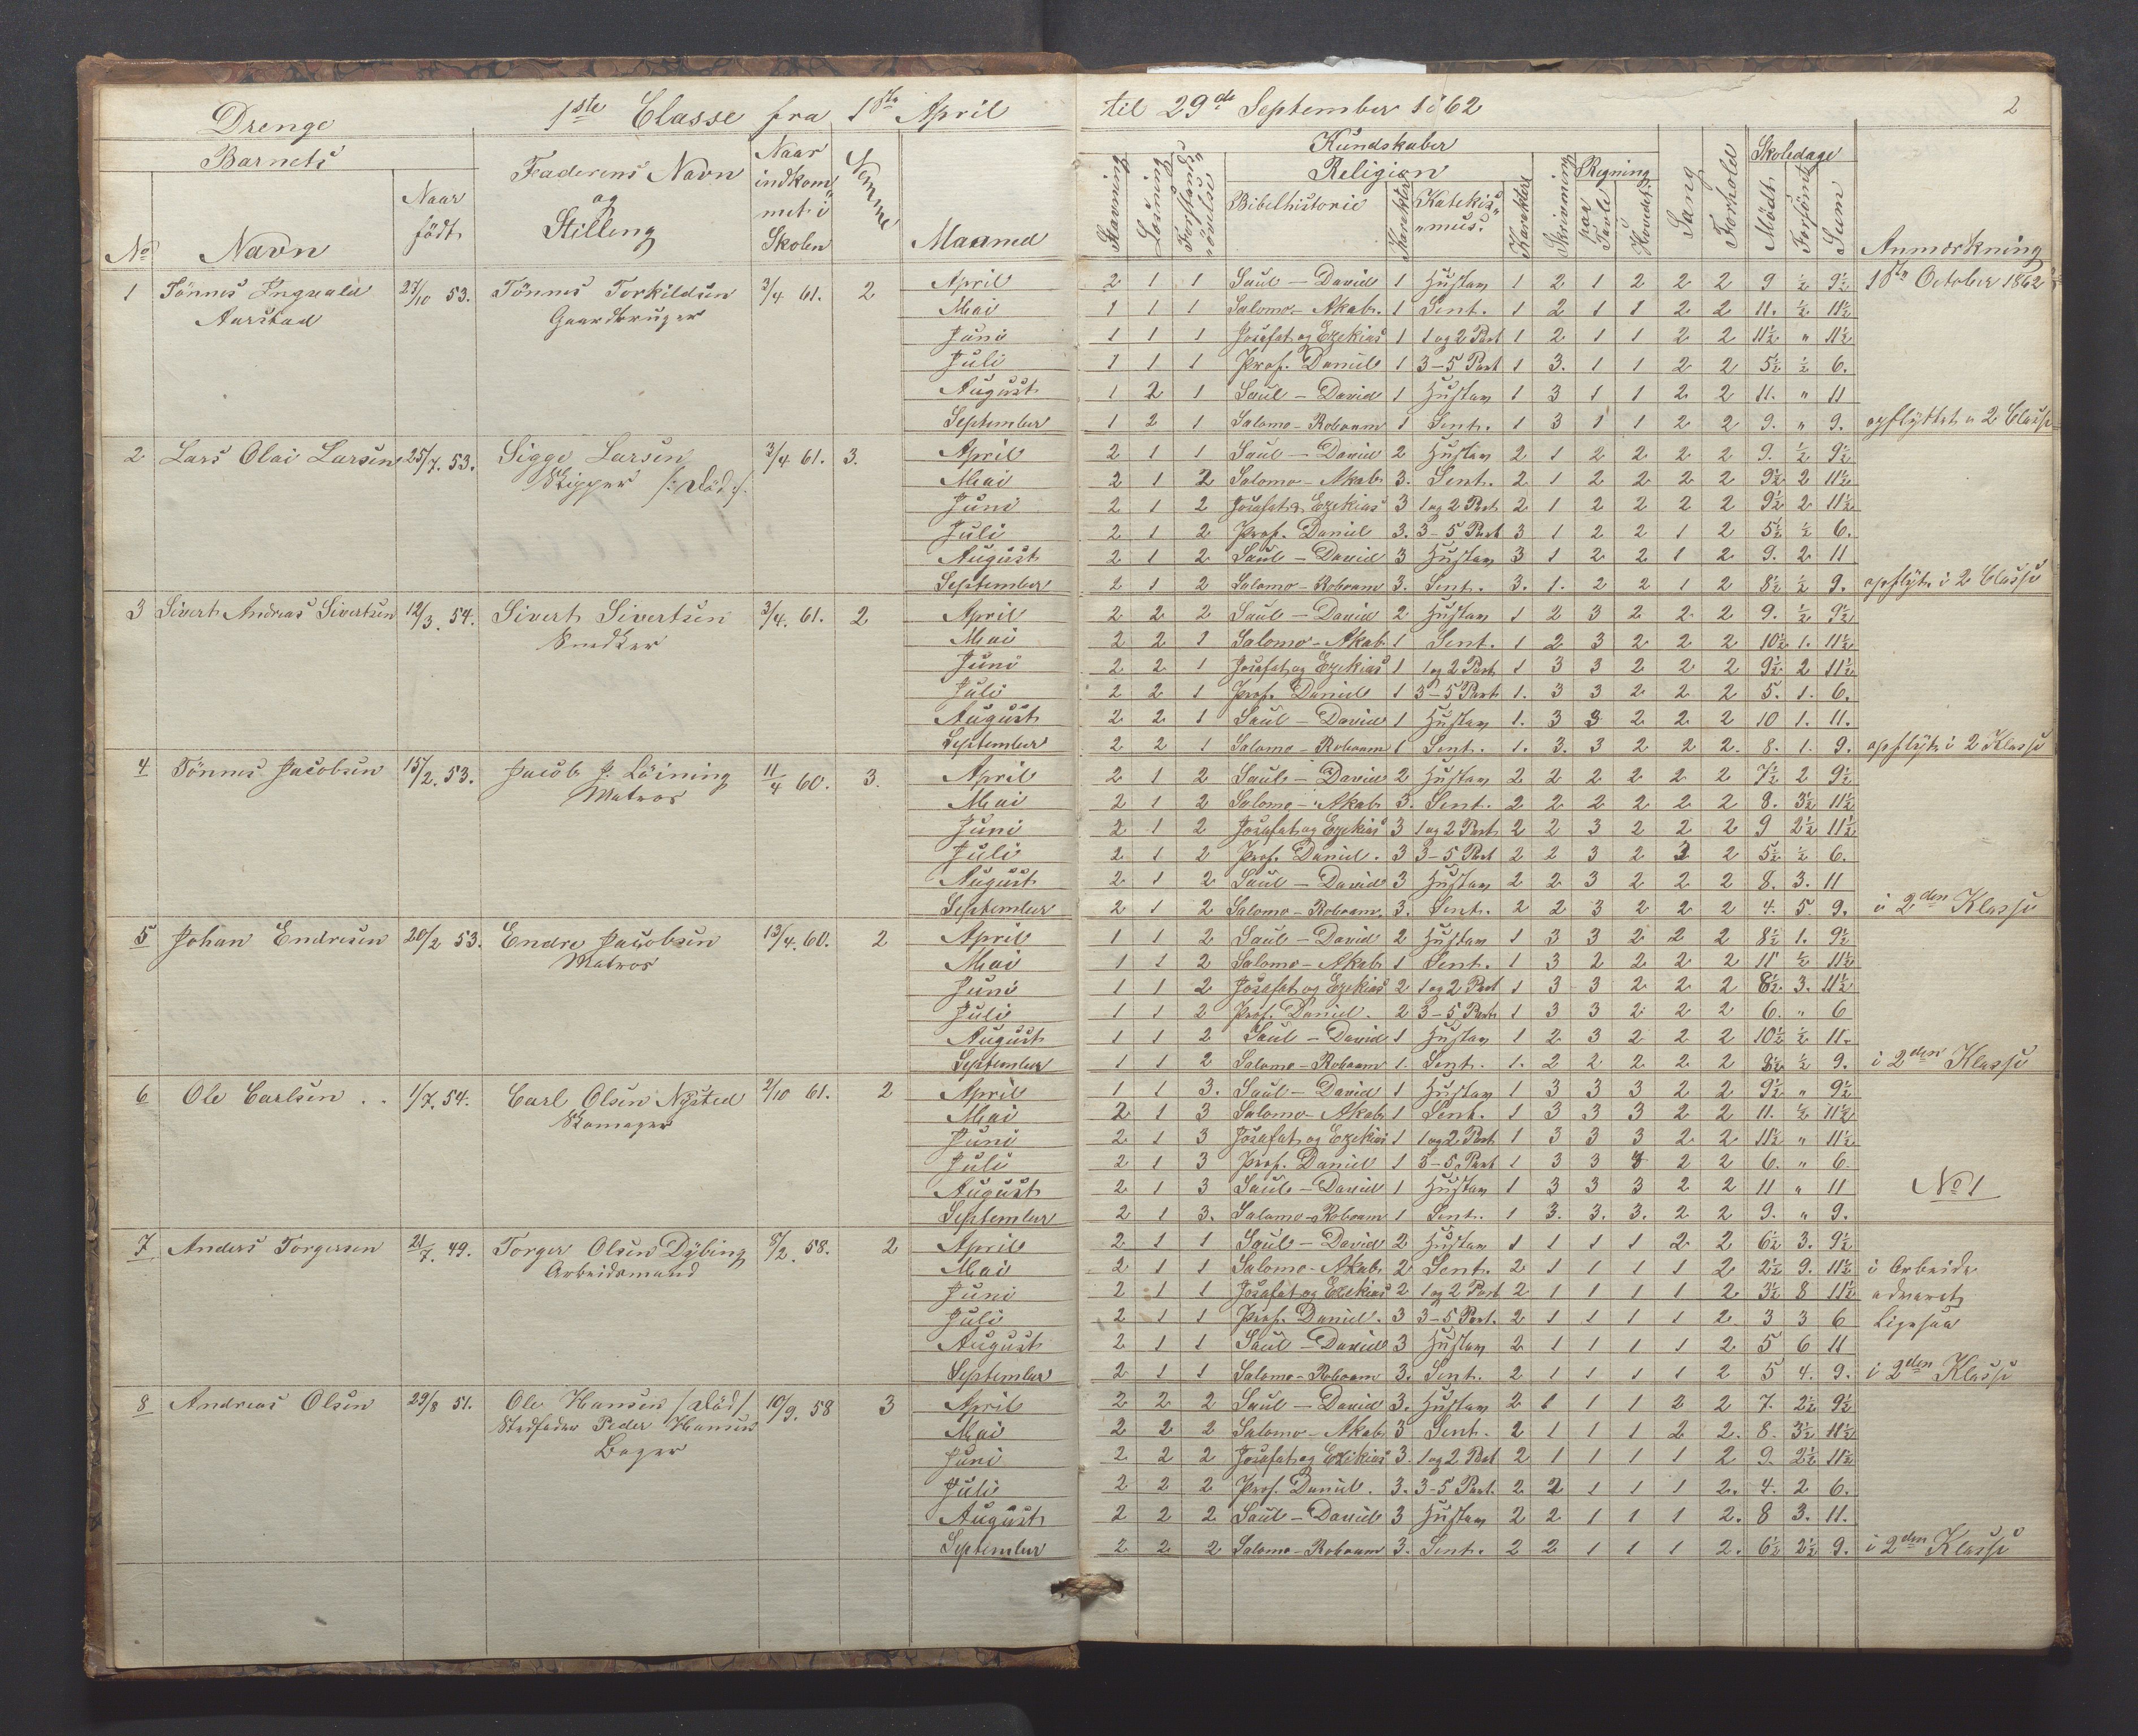 Drenge 1ste Classe fra 1ste April til 29de September 1862 2
Barnets Faderens Navn og Stilling Naar indkommet i Skolen Nemme Maaned
No Navn Naar født
Kundskaber
Stavning Læsning Forstandsøvelse Religion Skrivning Regning Sang Forhold Skoledage Anmærkning
Bibelhistorie Karakter Katekismus Karakter paa Tavle i Hovedet Mødt Forsømt Sum
1 Tønnes Ingvald 27/10 53. Tønnes Torkildsen 3/4 61. 2 April 2 1 1 Saul – David 1 Hustav 1 2 1 2 2 2 9 ½ 9½ 1ste October 1862
Aarstad Gaardbruger Mai 1 1 1 Salomo – Akab. 1 Sent. 1 2 1 1 2 2 11. ½ 11½
Juni 1 1 1 Josafat og Ezekias 1 1 og 2 Part 1 2 1 1 2 2 11½ " 11½
Juli 1 1 1 Prof. Daniel 1 3–5 Part 1 3. 1 1 2 2 5½ ½ 6.
August 1 2 1 Saul – David 1 Hustav 1 3 1 1 2 2 11. " 11
September 1 2 1 Salomo – Roboam 1 Sent. 1 3 1 1 2 2 9. " 9. opflyttet i 2 Classe
2 Lars Olai Larsen 25/7. 53. Sigge Larsen 3/4 61. 3. April 2 1 1 Saul – David 2 Hustav 2 1 2 2 2 2 9. ½ 9½
Skipper /: død :/. Mai 2 1 2 Salomo – Akab 3. Sent. 2 1 2 2 2 2 9½ 2 11½
Juni 2 1 2 Josafat & Ezekias 3 1 og 2 Part 2 1 2 2 2 2 9½ 2 11½
Juli 2 1 2 Prof. Daniel 3. 3–5 Part 3 1 2 2 1 2 5½ ½ 6.
August 2 1 2 Saul – David 3 Hustav 3 1 2 2 1 2 9. 2 11
September 2 1 2 Salomo – Roboam 3. Sent. 3. 1. 2 2 1 2 8½ ½ 9. opflyt. i 2 Classe
3 Sivert Andreas Sivertsen 12/3. 54. Sivert Sivertsen 3/4. 61. 2 April 2 2 2 Saul – David 2 Hustav 1 2 3 2 2 2 9. ½ 9½
Snedker Mai 2 2 1 Salomo – Akab 1 Sent. 1 2 3 2 2 2 10½ 1. 11½
Juni 2 2 1 Josafat og Ezekias 1 1 og 2 Part 1 3 3 2 2 2 9½ 2 11½
Juli 2 2 1 Prof. Daniel 1 3–5 Part 1. 3 3 2 2 2 5. 1. 6.
August 2 2 1 Saul – David 1 Hustav 1. 3 3 2 2 2 10 1. 11.
September 2 2 1 Salomo – Roboam 1 Sent. 1. 3. 3 2 2 2. 8. 1. 9. opflyt. i 2 Klasse
4 Tønnes Jacobsen 15/2. 53. Jacob J. Løining 11/4 60. 3. April 2 1 2 Saul – David 2 Hustav 2 2 2 2 2 2 7½ 2 9½
Matros Mai 2 1 2 Salomo – Akab 3. Sent. 2 2 2 2 2 2 8. 3½ 11½
Juni 2 1 2 Josafat og Ezekias 3 1 og 2 Part 2 2 3 2 2 2 9 2½ 11½
Juli 2 1 2 Prof. Daniel. 3 3–5 Part 2 2 3 2 2 2 5½ ½ 6.
August 2 1 2 Saul – David 3 Hustav 2 2 3 2 2 2 8. 3. 11
September 2 1 2 Salomo – Roboam. 3. Sent. 2 2 3 2 2 2 4. 5. 9. i 2den Klasse
5 Johan Endresen 20/2 53. Endre Jacobsen 13/4. 60. 2 April 1 1 2 Saul – David 2 Hustav 1 3 3 2 2 2 8½ 1. 9½
Matros Mai 1 1 2 Salomo – Akab 1 Sent. 1 3 2 2 2 2 11 ½ 11½
Juni 1 1 2 Josafat og Ezekias 2 1 og 2 Part 1 3 3 2 2 2 8½ 3. 11½
Juli 1 1 2 Prof. Daniel. 2 3–5 Part 1 3 3 2 2 2 6. " 6
August 1 1 2 Saul – David 1 Hustav 1 2 3 2 2 2 10½ ½ 11.
September 1 1 2 Salomo – Roboam 1. Sent. 1. 2 2 2 2 2 8½ ½ 9. i 2den Klasse
6 Ole Carlsen . . 1/7. 54. Carl Olsen Nysted 2/10 61. 2 April 1 1 3. Saul – David 1 Hustav 1 3 3 3 2 2 9½ " 9½
Skomager Mai 2 1 3 Salomo – Akab 1 Sent. 1 3 3 3 2 2 11. ½ 11½
Juni 2 1 3 Josafat og Ezekias 1 1 og 2 Part 1 3 3 3 2 2 11½ " 11½
Juli 2 1 3 Prof. Daniel 1 3–5 Part 1 3 3 3 2 2 6. " 6.
August 2 1 3 Saul – David 1 Hustav 1 3 3 3 2 2 11 " 11 No 1
September 2 1 3. Salomo – Roboam 1 Sent. 1 3. 3. 3. 2 2 9. " 9.
7 Anders Torgersen 21/7. 49. Torger Olsen Dybing 8/2. 58. 2 April 2 1 1 Saul – David 2 Hustav 1 1 1 1 2 2 6½ 3. 9½
Arbeidsmand Mai 2 1 1 Salomo – Akab 2 Sent. 2 1 1 1 1 2 2½ 9. 11½ i Arbeide
Juni 2 1 1 Josafat og Ezekias 2 1 og 2 Part 2 1 1 1 1 2 3½ 8 11½ advaret
Juli 2 1 1 Prof. Daniel. 3 3–5 Part. 2 1 1 1 1 2. 3 3 6 Ligesaa
August 2 1 1 Saul – David 3 Hustav 2 1 1 1 1 2. 5 6 11
September 2 1 1 Salomo – Roboam 3. Sent. 2 1 1 1 1 2 5 4. 9. i 2den Klasse
8 Andreas Olsen 29/8 51. Ole Hansen /død/ 10/9. 58 3 April 2 2 2 Saul – David 3. Hustav 2 1 1 1 2 2 7. 2½ 9½
Stedfader Peder Hansen Mai 2 2 2 Salomo – Akab 3 Sent. 2 1 1 1 2 2. 8. 3½ 11½
Bager Juni 2 2 2 Josafat og Ezekias 3. 1 og 2 Part 2 1 1 1 1 2 9. 2½ 11½
Juli 2 2 2 Prof. Daniel. 3. 3–5 Part. 2 2 1 1 1 2. 4. 2 6.
August 2 2 2 Saul – David 3 Hustav 2 2 1 1 1 2. 8 3. 11.
September 2 2 2 Salomo – Roboam 3. Sent. 2 2 1 1 1 2. 6½ 2½ 9. i 2den Klasse